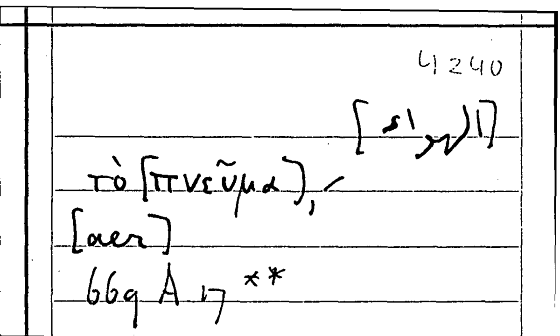 4240
[الهواء]
τὸ [πνεῦμα],
[aer]
669 A 17 **